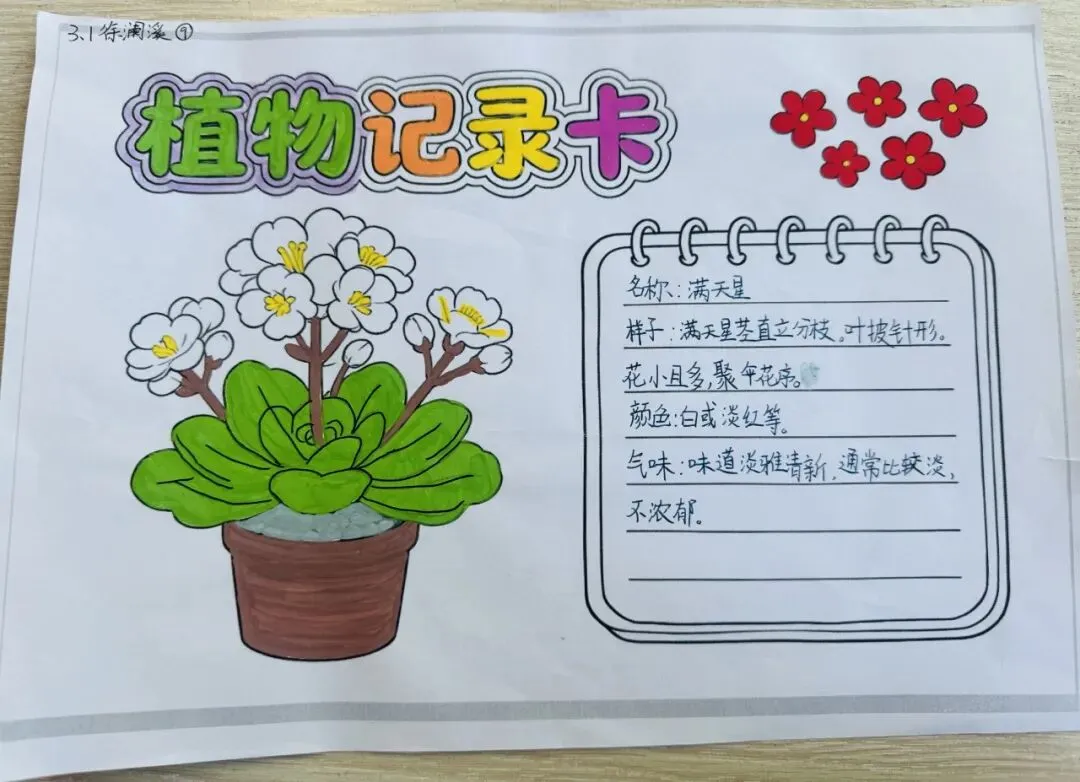 3.1徐澜溪⑨
植物记录卡
名称：满天星
样子：满天星茎直立分枝。叶披针形。
花小且多，聚伞花序。
颜色：白或淡红等。
气味：味道淡雅清新，通常比较淡，
不浓郁。